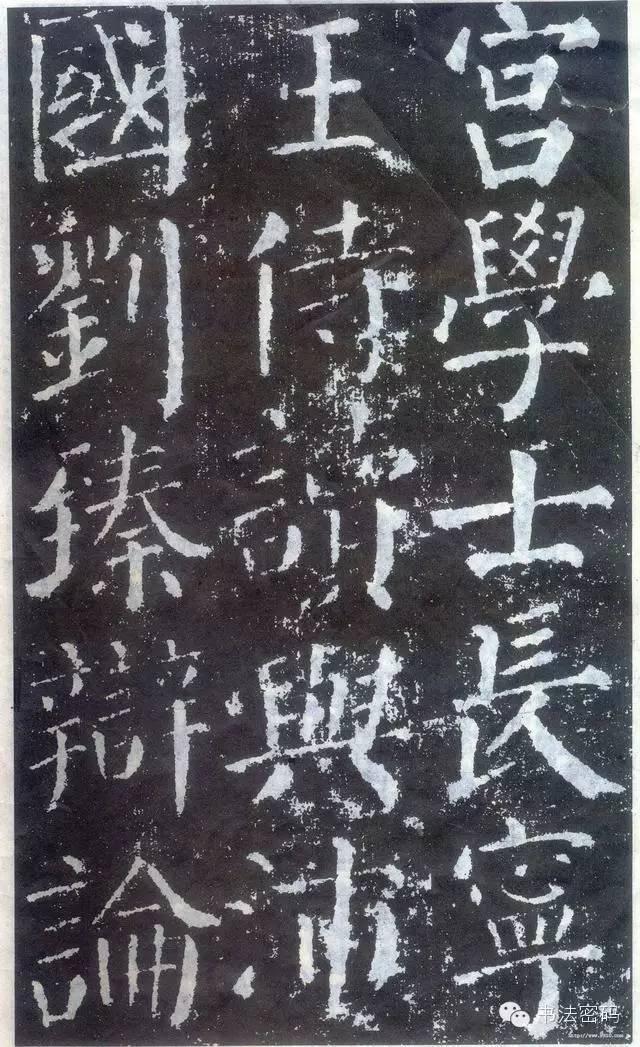 宮學士長寧
王侍講與沛
國劉臻辯論
书法密码